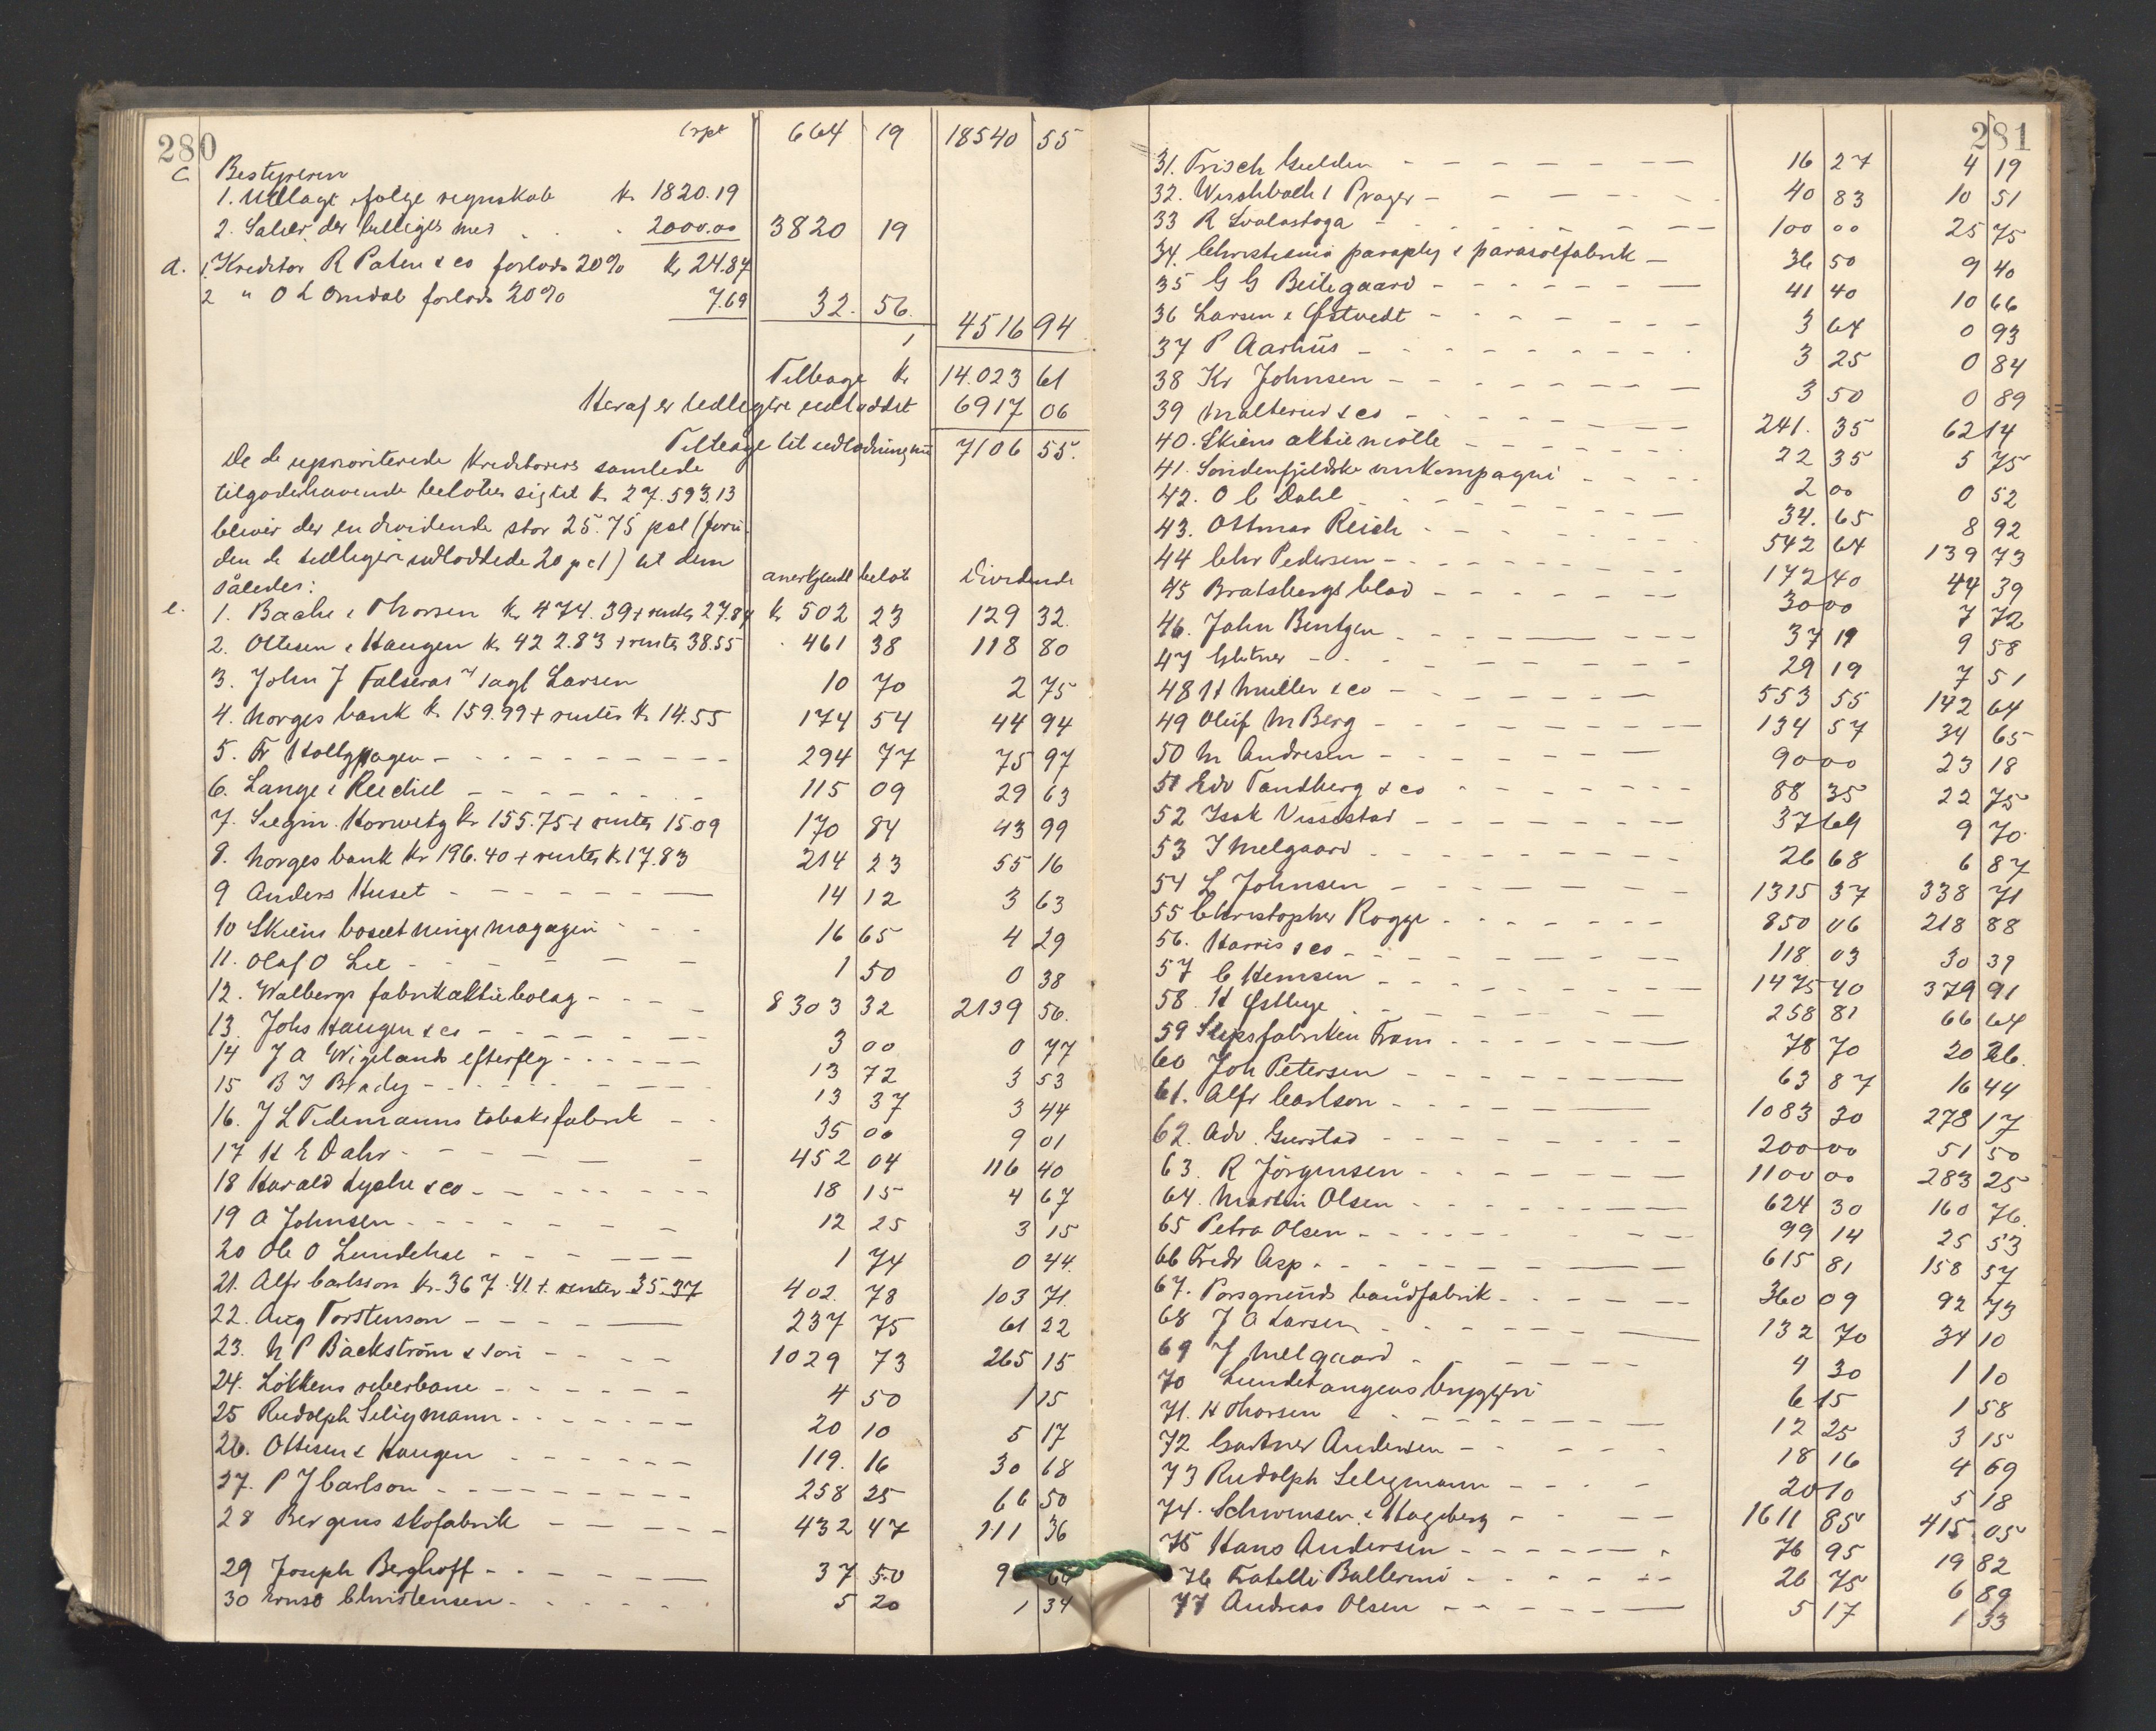 280
trpt 664 19 18540 55
c Bestyreren
1. Udlagt ifølge regnskab kr 1820.19
2. Salær, der billiges med 2000.00 3820 19
d. 1. Kreditor R Paten & co forlods 20% kr 24.87
2 " O L Omdal forlods 20% 7.69 32. 56.
4516 94
Tilbage kr 14.023 61
Heraf er tidligere udloddet 6917 06
Tilbage til udlodning nu 7106 55.
Da de uprioriterede kreditorers samlede
tilgodehavende beløber sig til kr 27.593.13
bliver der en dividende stor 25.75 pct (foru-
den de tidligere udloddede 20 pct) til dem
således: anerkjendt beløb Dividende
e. 1. Bache & Thorsen kr 474.39 + renter 27.84 kr 502 23 129 32.
2. Ottesen & Haugen kr 422.83 + renter 38.55 461 38 118 80
3. John J Falseraas v/ sagf Larsen 10 70 2 75
4. Norges bank kr 159.99 + renter kr 14.55 174 54 44 94
5. Fr Koltzpagen 294 77 75 97
6. Lange & Reichel 115 09 29 63
7. Siegm. Horwitz kr 155.75 + renter 15.09 170 84 43 99
8. Norges bank kr 196.40 + renter kr 17.83 214 23 55 16
9 Anders Huset 14 12 3 63
10 Skiens bosætningsmagazin 16 65 4 29
11. Olaf O Lie 1 50 0 38
12. Walbergs fabrikaktiebolag 8303 32 2139 56.
13. Johs Haugen & co 3 00 0 77
14 J A Wigelands efterflg 13 72 3 53
15 B J Blady 13 37 3 44
16. J L Tidemanns tobaksfabrik 35 00 9 01
17 H E Dahr 452 04 116 40
18 Harald Lyche & co 18 15 4 67
19 A Johnsen 12 25 3 15
20 Ole O Lundehae 1 74 0 44.
21. Alfr Carlsson kr. 367.41 + renter 35.37 402. 78 103 71.
22. Aug Torstenson 237 75 61 22
23. N P Bäckström & son 1029 73 265 15
24. Løkkens reberbane 4 50 1 15
25 Rudolph Seligmann 20 10 5 17
26. Ottesen & Haugen 119. 16 30 68
27. P J Carlson 258 25 66 50
28 Bergens skofabrik 432 47 111 36
29 Joseph Berghoff 37 50 9
30 Ernst Christensen 5 20 1 34
281
31. Frisch Gulden 16 27 4 19
32. Wirschbach & Prager 40 83 10 51
33 R Svalastoga 100 00 25 75
34. Christiania paraply & parasolfabrik 36 50 9 40
35 G G Beilegaard 41 40 10 66
36 Larsen & Østvedt 3 64 0 93
37 P Aarhus 3 25 0 84
38 Kr Johnsen 3 50 0 89
39 Malterud & co 241. 35 62 14
40. Skiens aktiemølle 22 35 5 75
41. Søndenfjeldske vinkompagni 2 00 0 52
42. O C Dahl 34. 65 8 92
43. Ottmar Reich 542 64 139 73
44 Chr Pedersen 172 40 44 39
45 Bratsbergs blad 30 00 7 72
46. John Bentzen 37 19 9 58
47 Glutner 29 19 7 51
48 H Muller & co 553 55 142 64
49 Oluf M Berg 134 57 34 65
50 M Andresen 90 00 23 18
51 Edv Tandberg & co 88 35 22 75
52 Isak Vissestad 37 69 9 70
53 J Melgaard 26 68 6 87
54 L Johnsen 1315 37 338 71
55 Christopher Rogge 850 06 218 88
56. Harris & co 118 03 30 39
57 C Hemsen 1475 40 379 91
58. H Østbye 258 81 66 64
59 Slipsfabriken Fram 78 70 20 26.
60 Joh Petersen 63 87 16 44
61. Alfr Carlson 1083 30 278 17
62. Adv. Gurstad 200 00 51 50
63. R Jörgensen 1100 00 283 25
64. Martin Olsen 624 30 160 76.
65 Petra Olsen 99 14 25 53
66 Fredr Asp 615 81 158 57
67. Porsgrunds baandfabrik 360 09 92 73
68 J A Larsen 132 70 34 10
69 J Melgaard 4 30 1 10
70 Lundetangens bryggeri 6 15 1 58
71. H Thorsen 12 25 3 15
72 Gartner Andersen 18 16 4 69
73 Rudolph Seligmann 20 10 5 18
74. Schwensen & Hagberg 1611 85 415 05
75 Hans Andersen 76 95 19 82
76 Fratelli Ballerini 26 75 6 89
77 Andreas Olsen 5 17 1 33